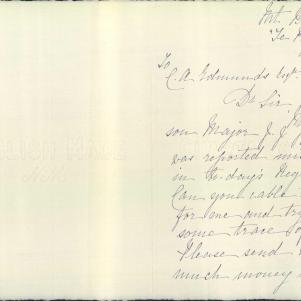 Mt
"Te
To
C. A. Edmunds Esqr
Dr Sir,
son Major J. J.
was reported mis
in to-day's Reg
Can you cable
for me and tr
some trace of
Please send
much money